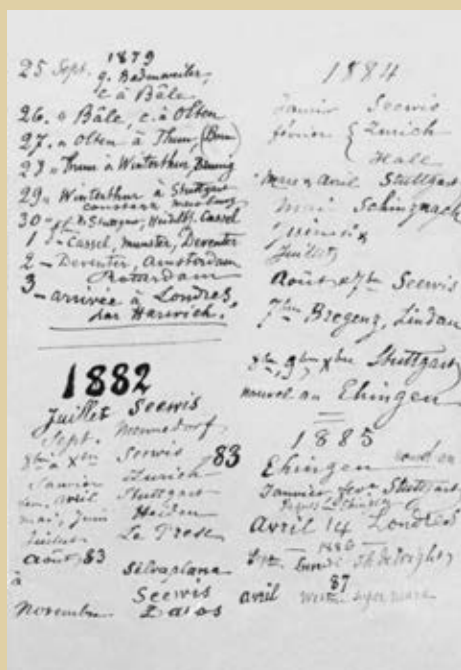 1879
25 Sept. q. Badenweiler,
c. à Bâle
26. " Bâle, c. à Olten
27. " Olten à Thun, (Bern)
28 " Thun à Winterthur,
29 " Winterthur à Stuttgart
30 " Stuttgart, Heidelb. Cassel
1 Cassel, Munster, Deventer
2 – Deventer, Amsterdam
Rotterdam
3 – arrivée à Londres,
par Harwich.
1882
Juillet Seewis
Sept. Mennedorf
8bre à Xbre Seewis 83
Janvier Zurich
fev. avril Stuttgart
mai, Juin Heiden
Juillet Le Prese
août, 83 Silvaplana
à Seewis
Novembre
1884
Janvier Seewis
février { Zurich
Halle
Mars & Avril Stuttgart
Mai Schinznach
Juin
Juillet
Août & 7bre Seewis
7bre Bregenz, Lindau
8bre, 9bre, Xbre Stuttgart
nouvel an Ehingen
1885
Ehingen nouvel an
Janvier fevr Stuttgart
Avril 14 Londres
1886
87
avril Weston super mare